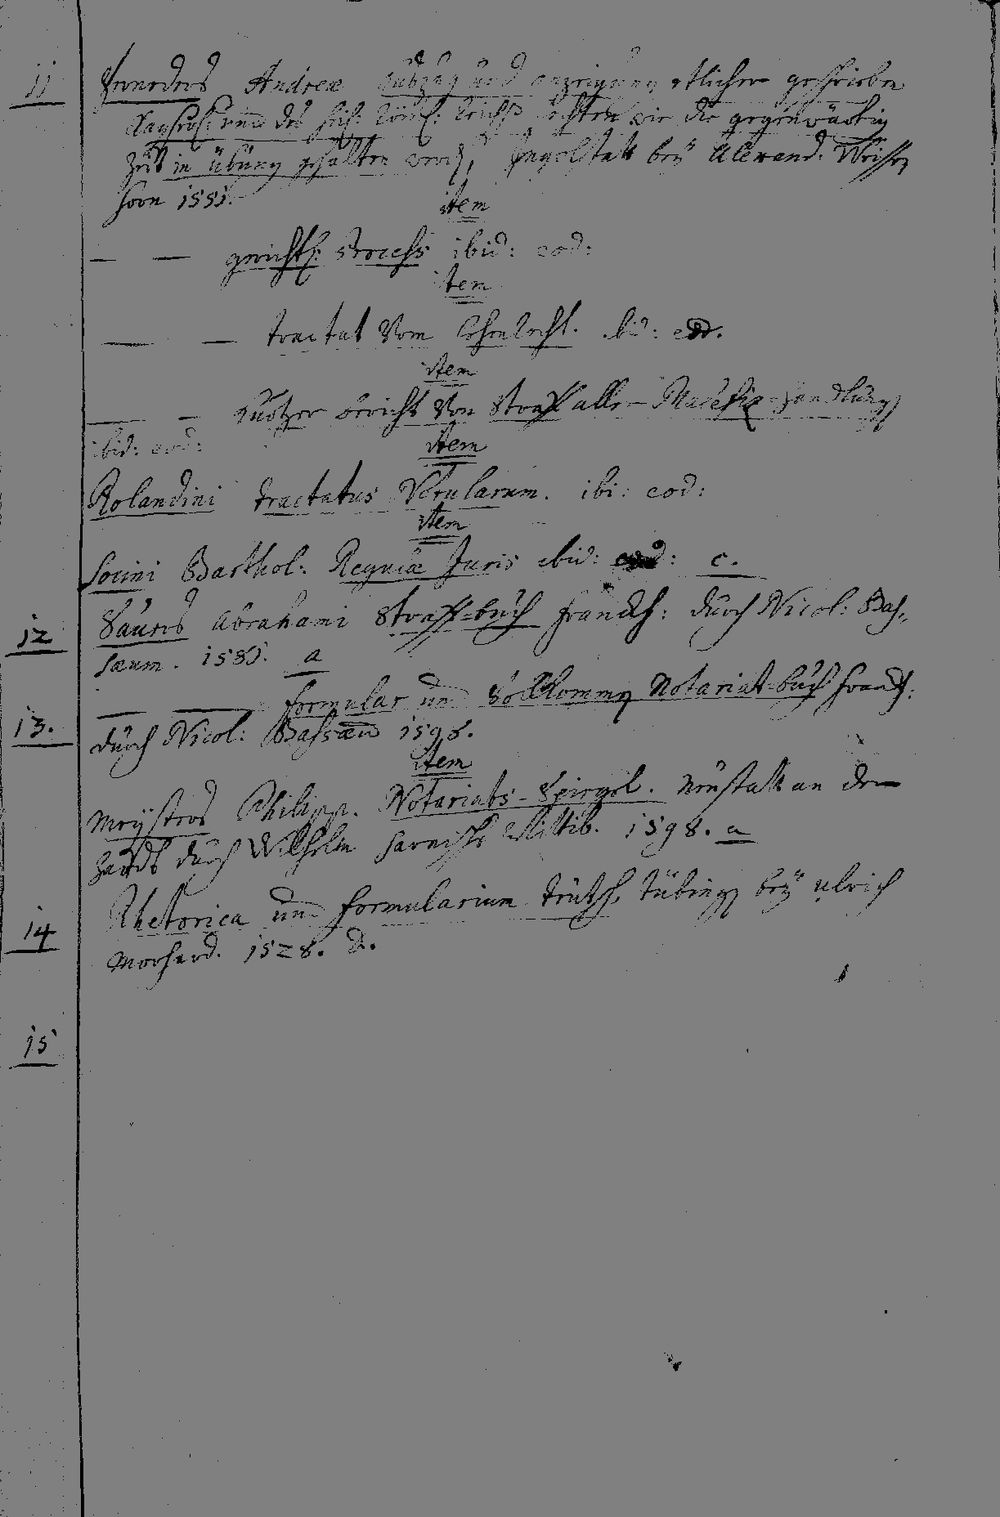 11 Perneders Andreæ Außzug und anzeigung etlicher geschriben
Kayserl: unnd des heil: Röm: Reichs rechten wie die gegenwärtig
Zeit in übung gehalten werd, Ingolstatt beÿ Alexand. Weissen
horn 1551.
item
— — gerichtl: Process ibid: eod:
item
— — tractat Vom Lehenrecht. ibid: eod.
item
— — Kurtzer bericht Von Straff aller Malefitz-handlung
ibid: eod:
item
Rolandini tractatus Notularum. ibi: eod:
item
Socini Barthol: Regulæ Juris ibid: eod: c.
12 Sauers Abrahami Straff-buch franckf: durch Nicol: Bas-
sæum. 1581. a
13. — — formular und Vollkommen Notariat-buch franckf:
durch Nicol: Bassæu 1596.
item
Meÿsters Philipp. Notariats-Spiegel. Neustatt an der
Hardt durch Wilhelm Harnischs Wittib. 1598. a
14 Rhetorica und formularium teutsch. tübingen beÿ ulrich
Morhard. 1528. d.
15